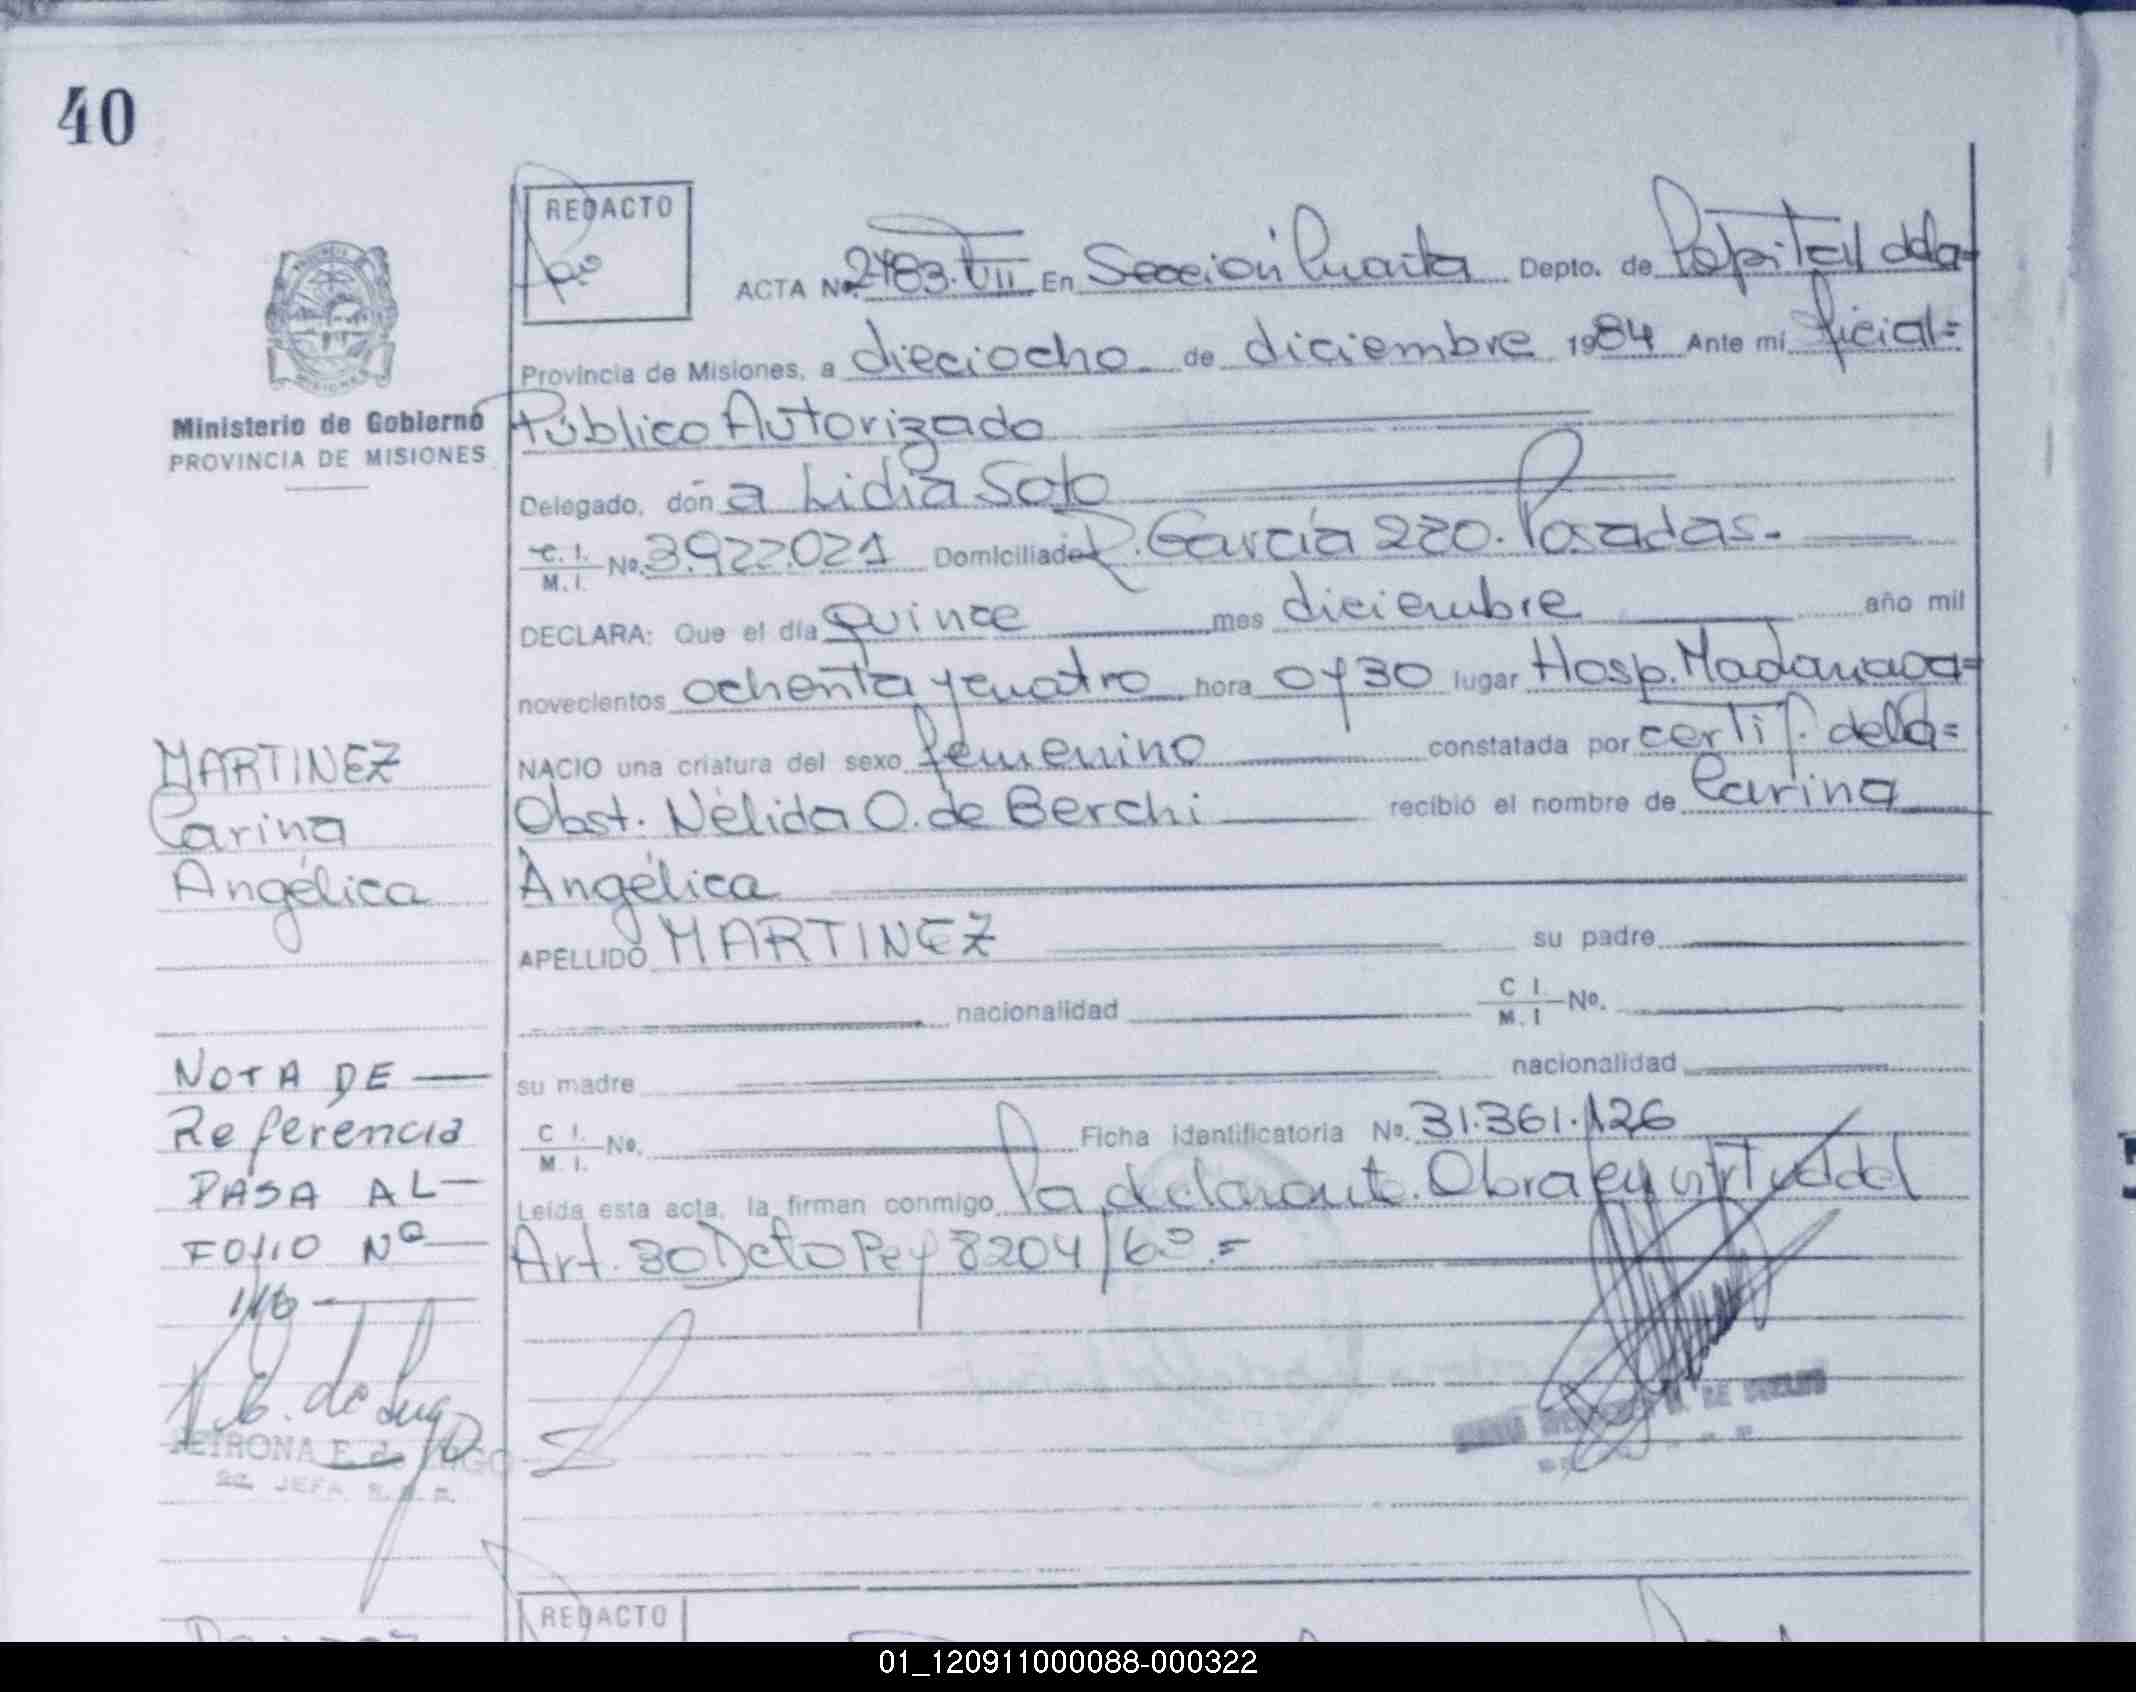 40
REDACTO
ACTA Nº 2483.VII En Sección Cuarta Depto. de Capital de la=
Provincia de Misiones, a dieciocho de diciembre 1984 Ante mí Oficial=
Ministerio de Gobierno
PROVINCIA DE MISIONES
Público Autorizado
Delegado, don a Lidia Soto
C. I. M. I. Nº 3.922.021 Domiciliado R. García 220. Posadas.-
DECLARA: Que el día quince mes diciembre año mil
novecientos ochenta y cuatro hora 0430 lugar Hosp. Madariaga=
NACIO una criatura del sexo femenino constatada por certif. de la=
Obst. Nélida O. de Berchi recibió el nombre de Carina
Angélica
APELLIDO MARTINEZ su padre
nacionalidad C I. M. I Nº.
su madre nacionalidad
C I. M. I. Nº. Ficha identificatoria Nº. 31.361.126
Leída esta acta, la firman conmigo, la declarante. Obra en virtud del
Art. 30 Dcto Ley 8204/63.=
MARTINEZ
Carina
Angélica
NOTA DE
Referencia
PASA AL
FOLIO Nº
116
P. E. de Lugo
PETRONA E. de LUGO
JEFA
REDACTO
01_120911000088-000322